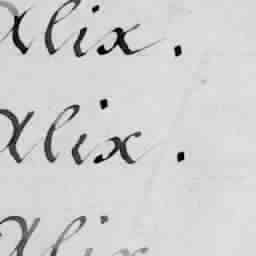 Alix.
Alix.
Alix